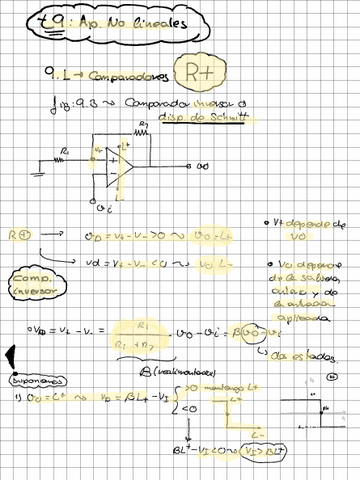 t9: Ap. No lineales
9.1 → Comparadores
R+
fig. 9.3 ~> Comparador inversor o
disp. de Schmitt
R2
R1
V+
L+
L-
vo
vi
R⊕ → vD = V+ - V- > 0 ~> vo = L+
vd = V+ - V- < 0 ~> vo L-
Comp.
inversor
• V+ depende de
vo
• Vo depende
de la salida
y de
la entrada
aplicada
• vD = v+ - v- = R1 / R1 + R2 vo - vi = βvo - vi
β (realimentador)
dos estados.
Suponemos
1) vo = L+ ~> vD = βL+ - vI
>0 mantengo L+
<0
L+
L-
βL+ - vI < 0 ~> vI > βL+